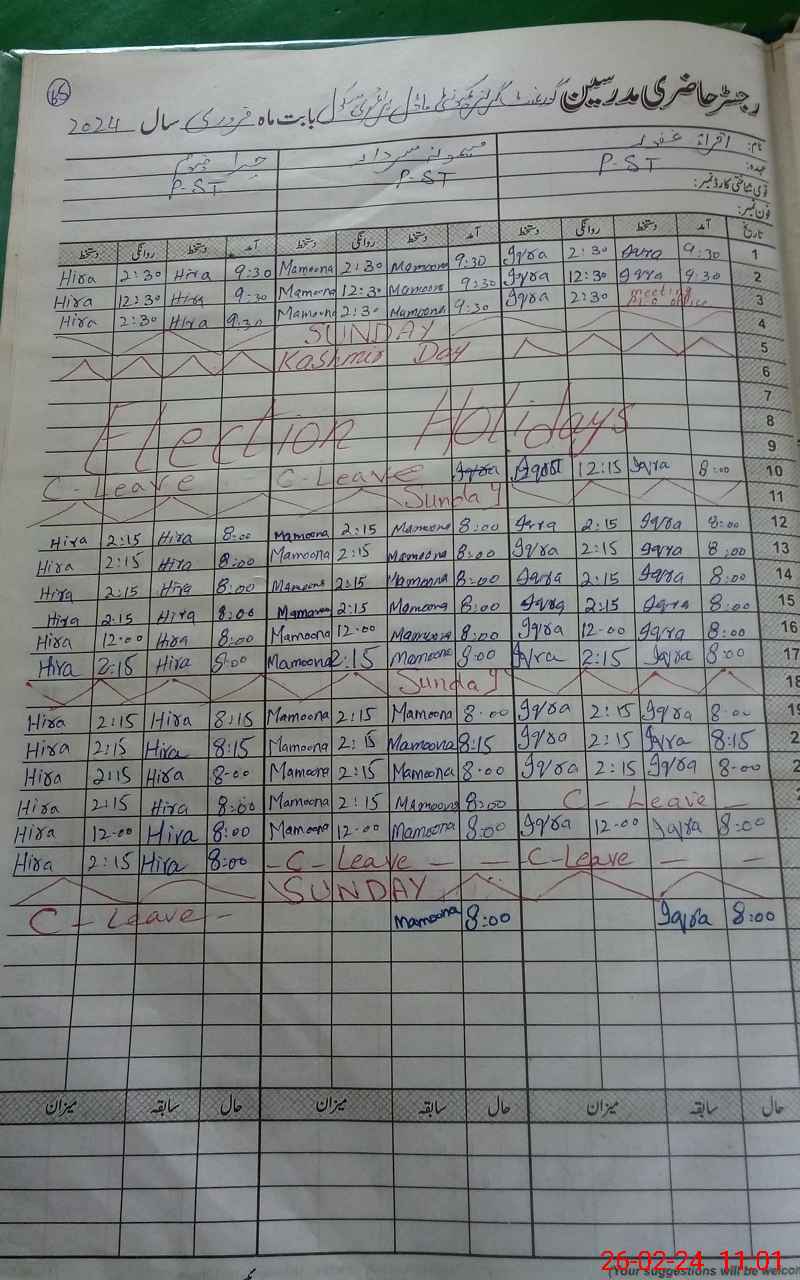 65
رجسٹر حاضری مدرسین گورنمنٹ گرلز کمیونٹی ماڈل پرائمری سکول بابت ماہ فروری سال 2024
نام: اقراء غفور میمونہ سردار حرا
عہدہ: P-ST P-ST P-ST
قومی شناختی کارڈ نمبر:
فون نمبر:
تاریخ آمد دستخط روانگی دستخط آمد دستخط روانگی دستخط آمد دستخط روانگی دستخط
Hira 2:30 Hira 9:30 Mamoona 2:30 Mamoona 9:30 Iqra 2:30 Iqra 9:30 1
Hira 12:30 Hira 9:30 Mamoona 12:30 Mamoona 9:30 Iqra 12:30 Iqra 9:30 2
Hira 2:30 Hira 9:30 Mamoona 2:30 Mamoona 9:30 Iqra 2:30 meeting office 3
SUNDAY 4
Kashmir Day 5
6
7
Election Holidays 8
9
C-Leave C-Leave 12:15 Iqra 8:00 10
Sunday 11
Hira 2:15 Hira 8:00 Mamoona 2:15 Mamoona 8:00 Iqra 2:15 Iqra 8:00 12
Hira 2:15 Hira 8:00 Mamoona 2:15 Mamoona 8:00 Iqra 2:15 Iqra 8:00 13
Hira 2:15 Hira 8:00 Mamoona 2:15 Mamoona 8:00 Iqra 2:15 Iqra 8:00 14
Hira 2:15 Hira 8:00 Mamoona 2:15 Mamoona 8:00 Iqra 2:15 Iqra 8:00 15
Hira 12-00 Hira 8:00 Mamoona 12-00 Mamoona 8:00 Iqra 12-00 Iqra 8:00 16
Hira 2:15 Hira 8:00 Mamoona 2:15 Mamoona 8:00 Iqra 2:15 Iqra 8:00 17
Sunday 18
Hira 2:15 Hira 8:15 Mamoona 2:15 Mamoona 8:00 Iqra 2:15 Iqra 8:00 19
Hira 2:15 Hira 8:15 Mamoona 2:15 Mamoona 8:15 Iqra 2:15 Iqra 8:15 2
Hira 2:15 Hira 8-00 Mamoona 2:15 Mamoona 8:00 Iqra 2:15 Iqra 8-00 2
Hira 2:15 Hira 8:00 Mamoona 2:15 Mamoona 8:00 C-Leave -
Hira 12-00 Hira 8:00 Mamoona 12-00 Mamoona 8:00 Iqra 12-00 Iqra 8:00
Hira 2:15 Hira 8:00 - C - Leave - - C-Leave - -
SUNDAY
C - Leave - Mamoona 8:00 Iqra 8:00
حال سابقہ میزان حال سابقہ میزان حال سابقہ میزان
26-02-24 11:01
(Your suggestions will be welcom